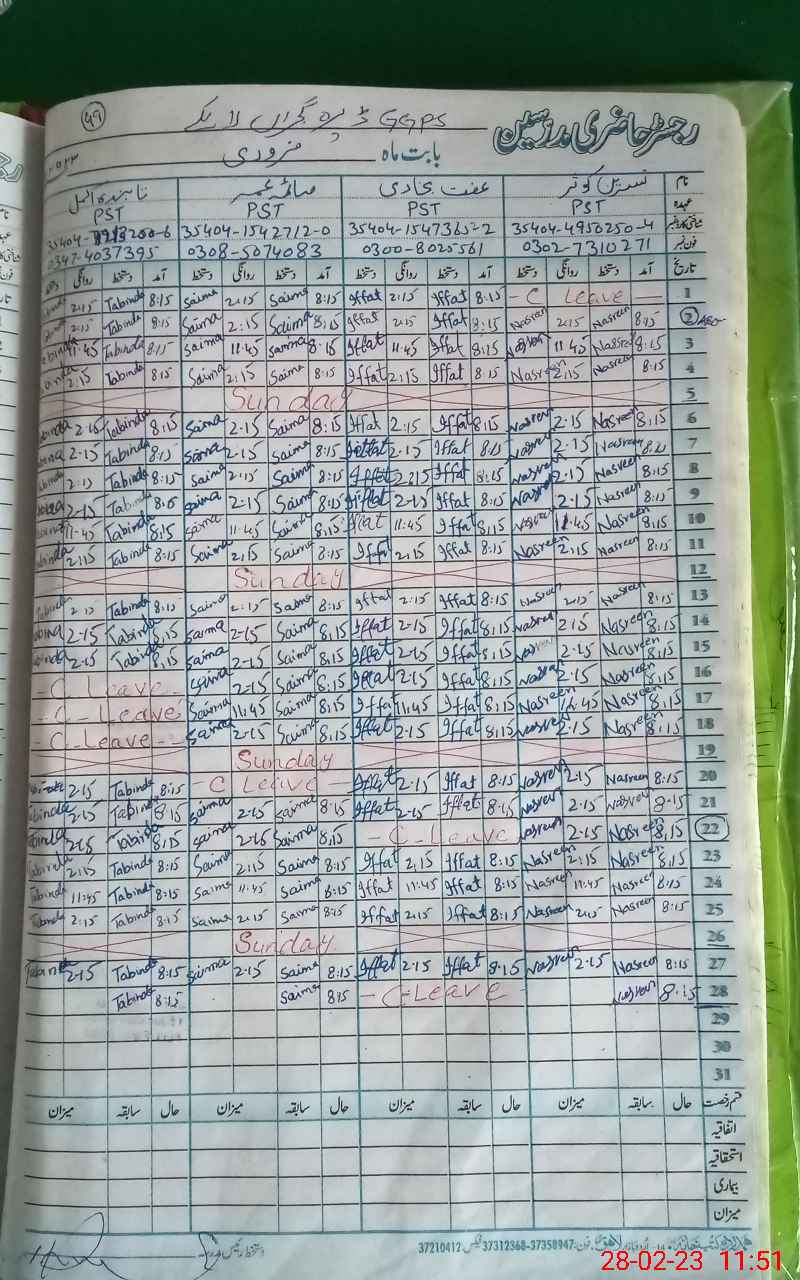 رجسٹر حاضری مدرسین GGPS
بابت ماہ فروری
نام نسرین کوثر عفت صائمہ
عہدہ PST PST PST PST
35404-4950250-4 35404-1547365-2 35404-1542712-0 35404-
فون نمبر 0302-7310271 0300-8025561 0308-5074083 0347-4037395
تاریخ آمد دستخط روانگی دستخط آمد دستخط روانگی دستخط آمد دستخط روانگی دستخط آمد دستخط روانگی
1 - C Leave - 8:15 Iffat 2:15 Iffat 8:15 Saima 2:15 Saima 8:15 Tabinda 2:15
2 8:15 Nasreen 2:15 Nasreen 8:15 Iffat 2:15 Iffat 8:15 Saima 2:15 Saima 8:15 Tabinda 2:15
3 8:15 Nasreen 11:45 Nasreen 8:15 Iffat 11:45 Iffat 8:15 Saima 11:45 Saima 8:15 Tabinda 11:45
4 8:15 Nasreen 2:15 Nasreen 8:15 Iffat 2:15 Iffat 8:15 Saima 2:15 Saima 8:15 Tabinda 2:15
5 Sunday
6 8:15 Nasreen 2:15 Nasreen 8:15 Iffat 2:15 Iffat 8:15 Saima 2:15 Saima 8:15 Tabinda 2:15 Tabinda
7 8:15 Nasreen 2:15 Nasreen 8:15 Iffat 2:15 Iffat 8:15 Saima 2:15 Saima 8:15 Tabinda 2:15
8 8:15 Nasreen 2:15 Nasreen 8:15 Iffat 2:15 Iffat 8:15 Saima 2:15 Saima 8:15 Tabinda 2:15
9 8:15 Nasreen 2:15 Nasreen 8:15 Iffat 2:15 Iffat 8:15 Saima 2:15 Saima 8:15 Tabinda 2:15
10 8:15 Nasreen 11:45 Nasreen 8:15 Iffat 11:45 Iffat 8:15 Saima 11:45 Saima 8:15 Tabinda 11:45
11 8:15 Nasreen 2:15 Nasreen 8:15 Iffat 2:15 Iffat 8:15 Saima 2:15 Saima 8:15 Tabinda 2:15
12 Sunday
13 8:15 Nasreen 2:15 Nasreen 8:15 Iffat 2:15 Iffat 8:15 Saima 2:15 Saima 8:15 Tabinda 2:15 Tabinda
14 8:15 Nasreen 2:15 Nasreen 8:15 Iffat 2:15 Iffat 8:15 Saima 2:15 Saima 8:15 Tabinda 2:15
15 8:15 Nasreen 2:15 Nasreen 8:15 Iffat 2:15 Iffat 8:15 Saima 2:15 Saima 8:15 Tabinda 2:15
16 8:15 Nasreen 2:15 Nasreen 8:15 Iffat 2:15 Iffat 8:15 Saima 2:15 Saima - C Leave -
17 8:15 Nasreen 11:45 Nasreen 8:15 Iffat 11:45 Iffat 8:15 Saima 11:45 Saima - C Leave
18 8:15 Nasreen 2:15 Nasreen 8:15 Iffat 2:15 Iffat 8:15 Saima 2:15 Saima - C Leave -
19 Sunday
20 8:15 Nasreen 2:15 Nasreen 8:15 Iffat 2:15 Iffat - C Leave - 8:15 Tabinda 2:15
21 8:15 Nasreen 2:15 Nasreen 8:15 Iffat 2:15 Iffat 8:15 Saima 2:15 Saima 8:15 Tabinda 2:15 Tabinda
22 8:15 Nasreen 2:15 Nasreen - C Leave 8:15 Saima 2:15 Saima 8:15 Tabinda 2:15 Tabinda
23 8:15 Nasreen 2:15 Nasreen 8:15 Iffat 2:15 Iffat 8:15 Saima 2:15 Saima 8:15 Tabinda 2:15 Tabinda
24 8:15 Nasreen 11:45 Nasreen 8:15 Iffat 11:45 Iffat 8:15 Saima 11:45 Saima 8:15 Tabinda 11:45 Tabinda
25 8:15 Nasreen 2:15 Nasreen 8:15 Iffat 2:15 Iffat 8:15 Saima 2:15 Saima 8:15 Tabinda 2:15 Tabinda
26 Sunday
27 8:15 Nasreen 2:15 Nasreen 8:15 Iffat 2:15 Iffat 8:15 Saima 2:15 Saima 8:15 Tabinda 2:15 Tabinda
28 8:15 Nasreen - C Leave - 8:15 Saima 8:15 Tabinda
29
30
31
قسم رخصت حال سابقہ میزان حال سابقہ میزان حال سابقہ میزان حال سابقہ میزان
اتفاقیہ
استحقاقیہ
بیماری
میزان
لاہور فون: 37358947-37312368 فیکس 37210412 دستخط
28-02-23 11:51